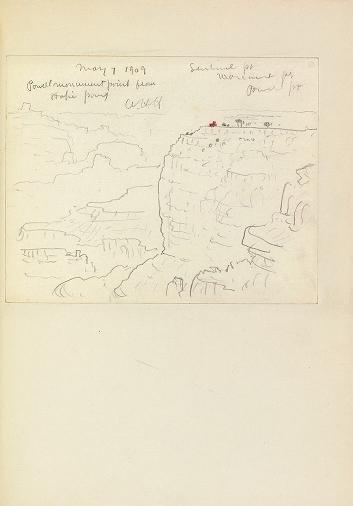 May 7 1909
Powell monument point from
Hopi point
WHH
Sentinel pt
Monument pt
Powell pt